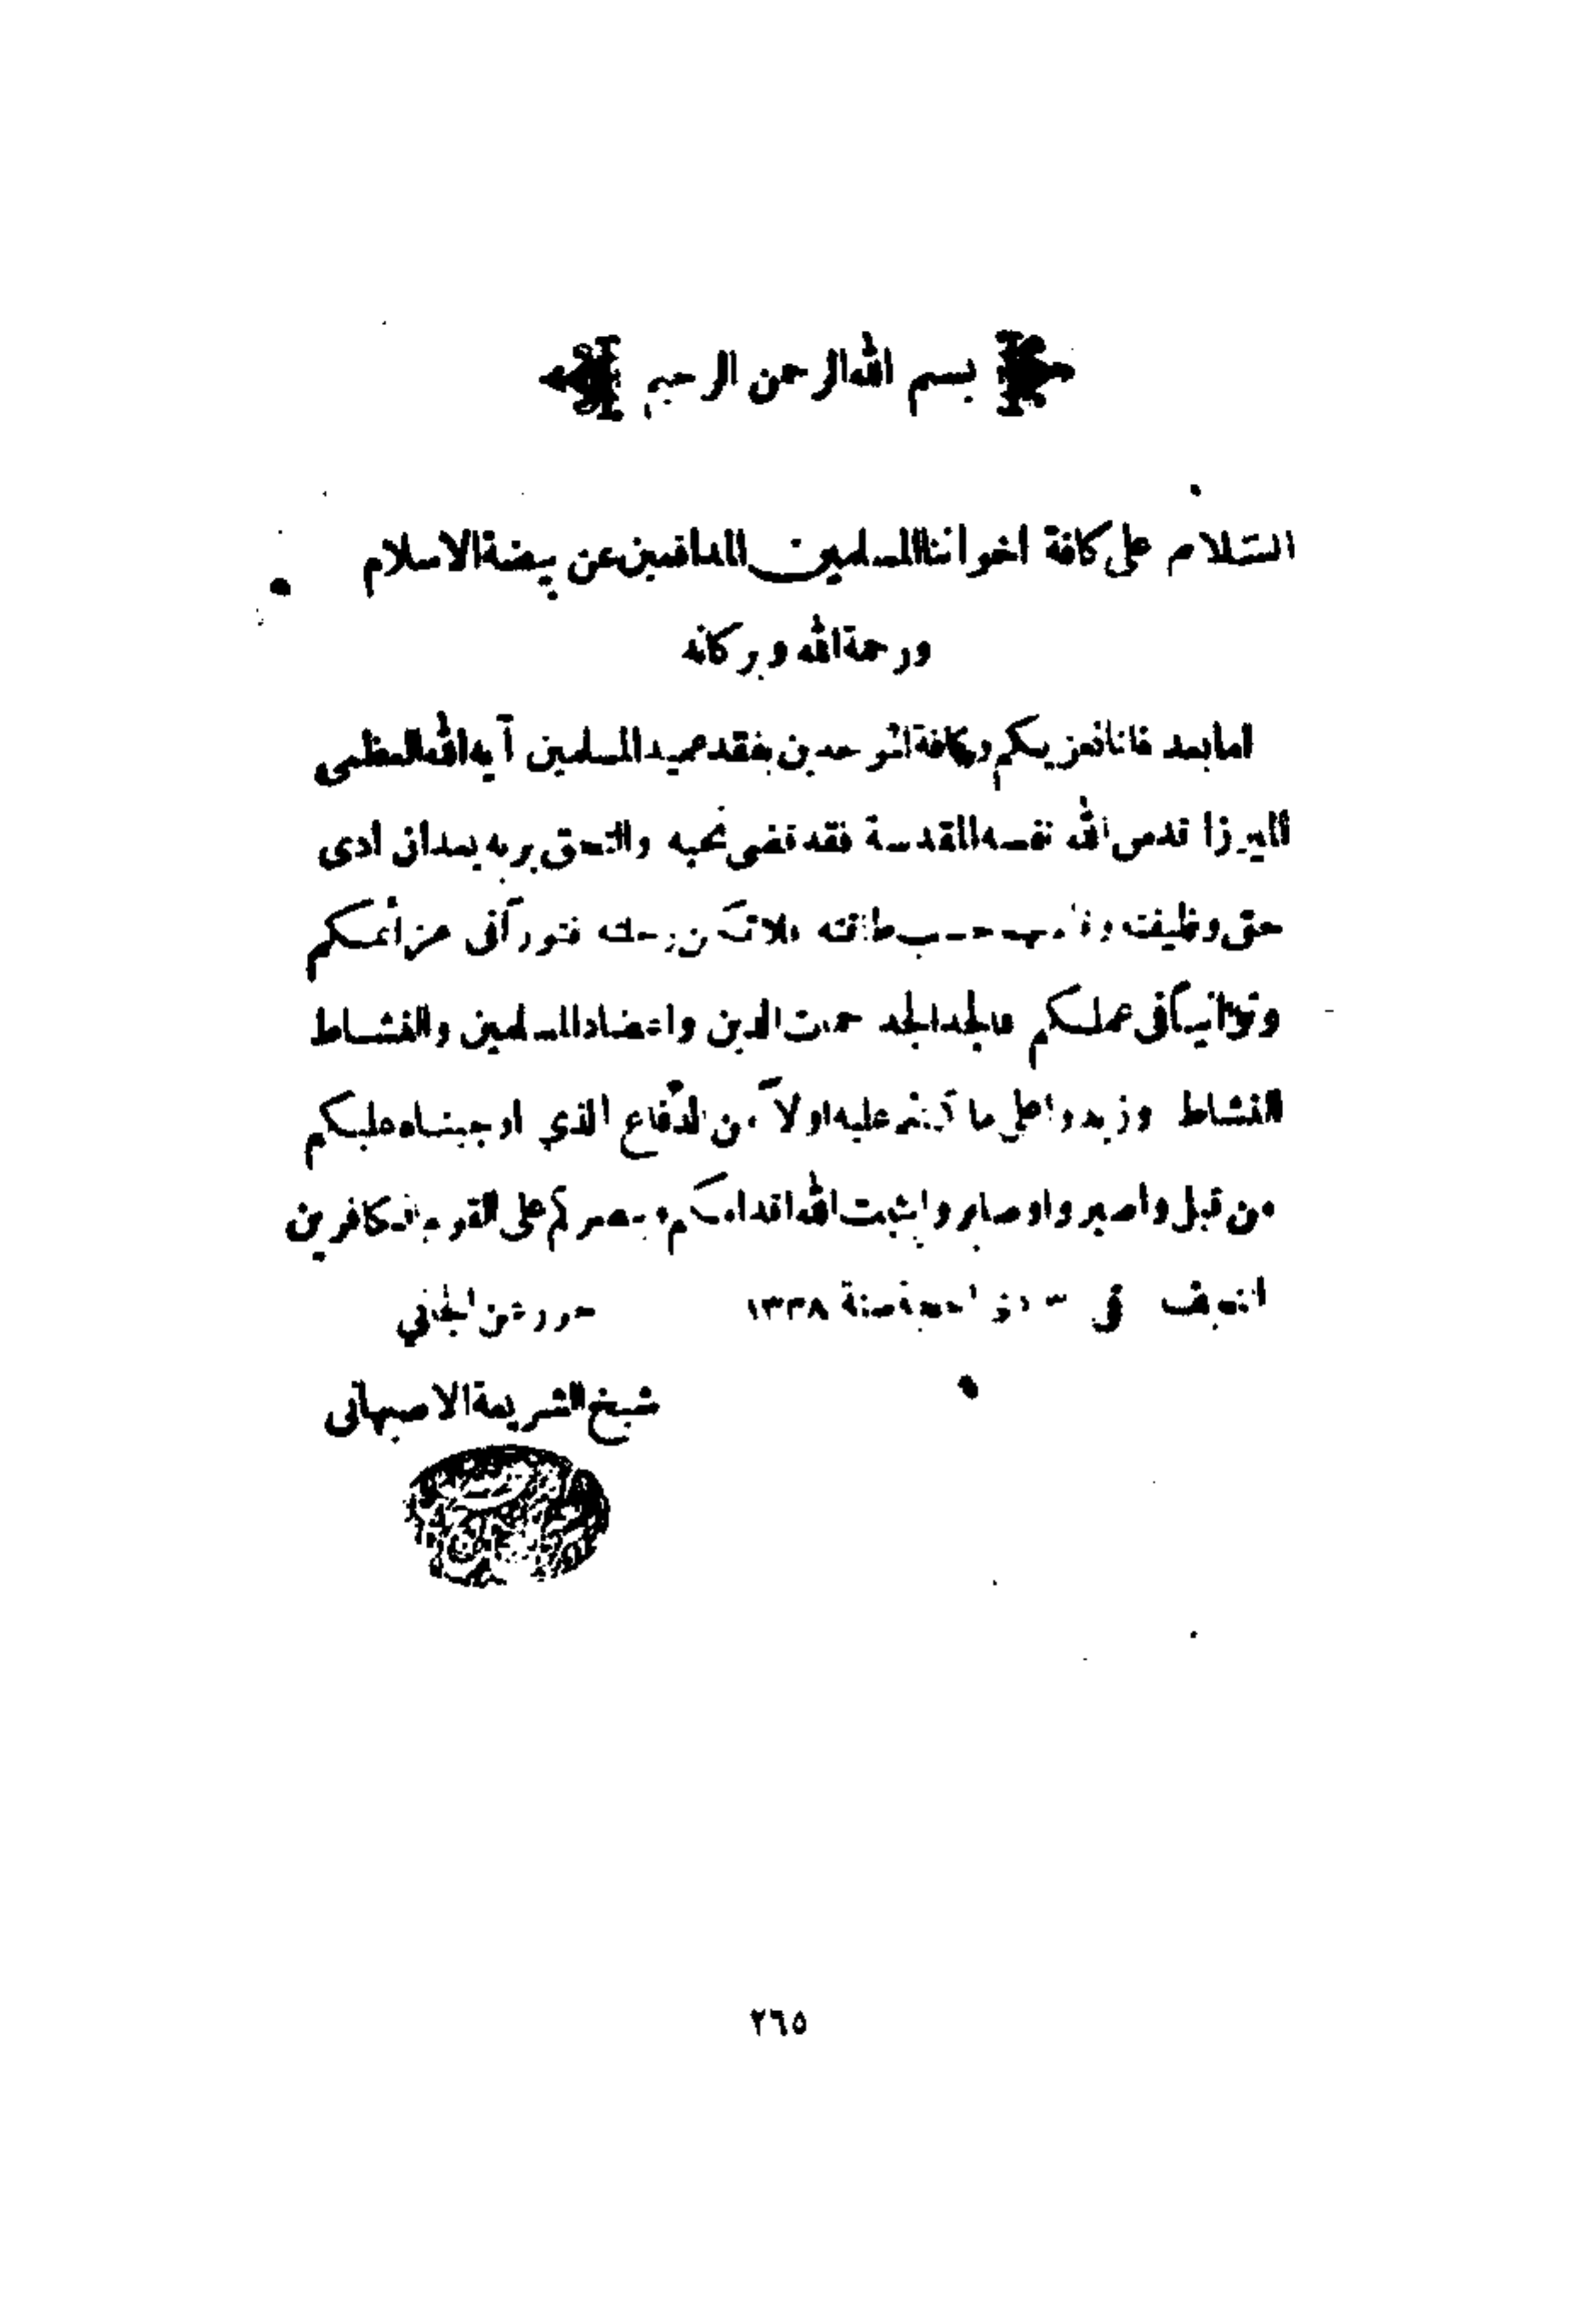 بسم الله الرحمن الرحيم
السلام على كافة اخواننا المسلمين المدافعين عن بيضة الاسلام
ورحمة الله وبركاته
اما بعد فانا نعزيكم وكافة الموحدين بفقد عميد المسلمين آية الله العظمى
الميرزا قدس الله نفسه المقدسة فقد قضى نحبه والتحق بربه بعد ان ادى
حق وظيفته حسب طاقته فلا تكن رحلته فتورا في عزائمكم
وتوانيا في عملكم فالجد الجد حماة الدين واعضاد المسلمين والنشاط
النشاط وزيدوا على ما كنتم عليه اولا من الدفاع الذي اوجبناه عليكم
من قبل واصبروا وصابروا يثبت الله اقدامكم وينصركم على القوم الكافرين
النجف في ٣ ذو الحجة سنة ١٣٣٨ حرر من الجاني
شيخ الشريعة الاصبهاني
٢٦٥